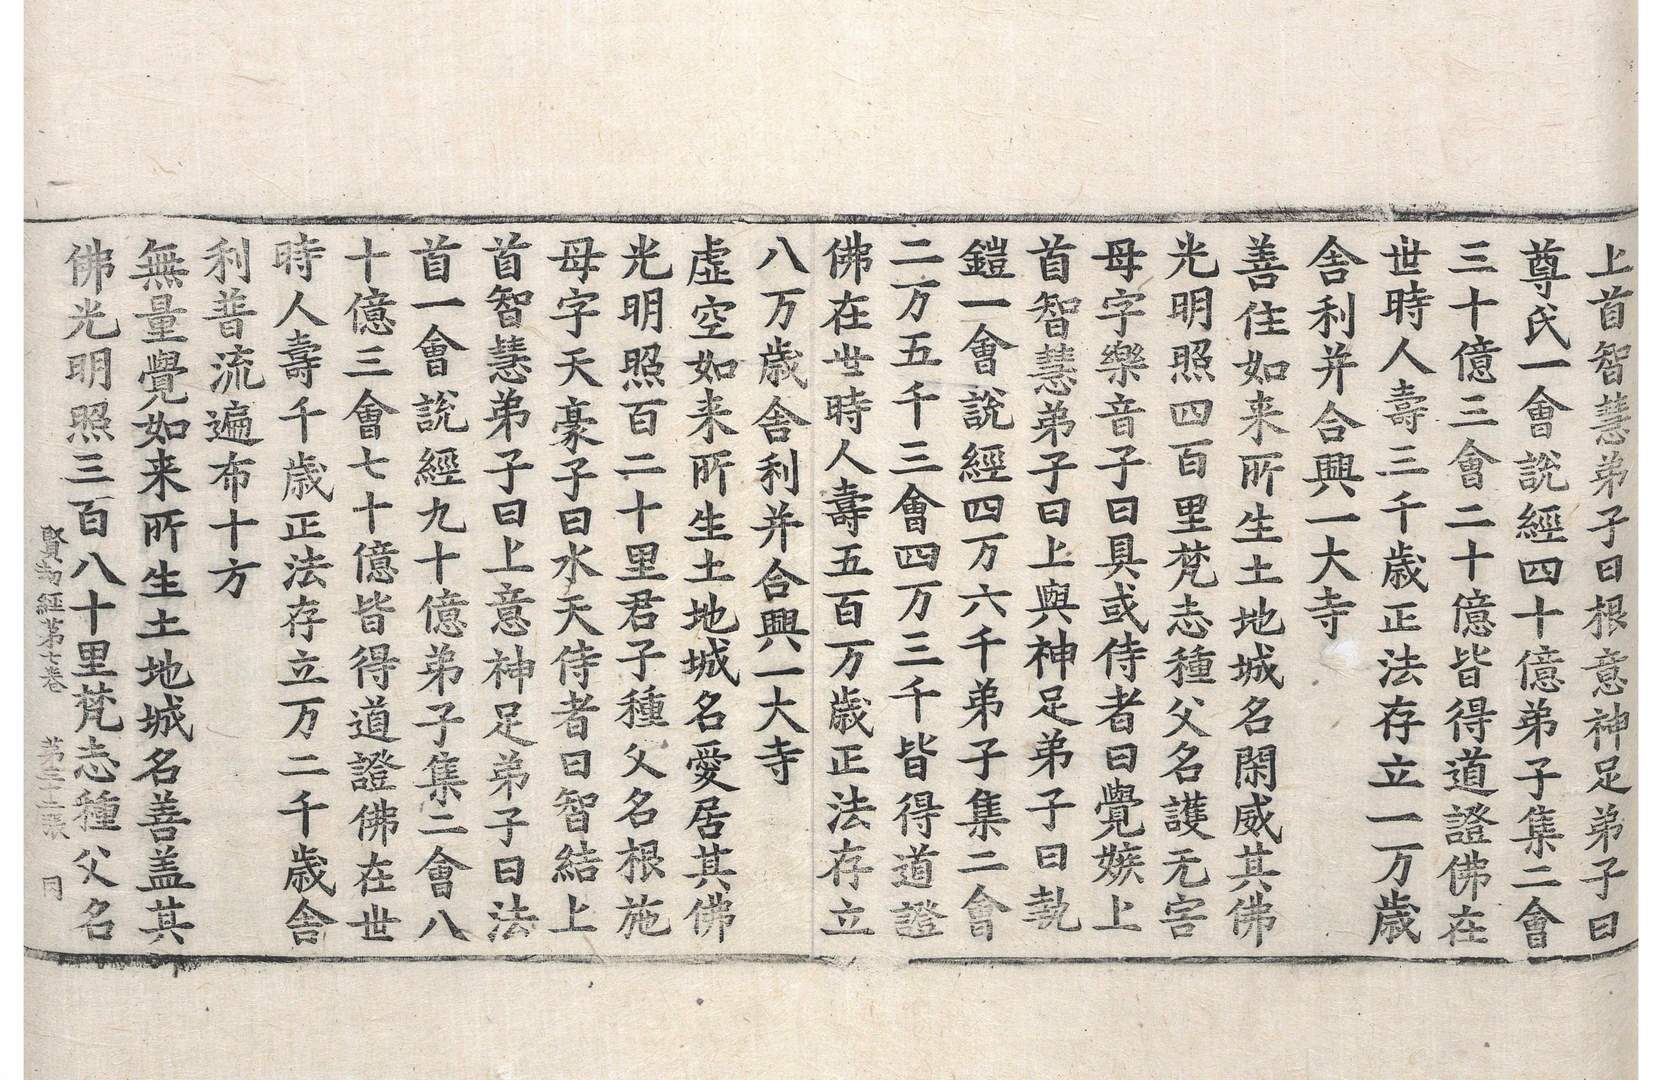 上首智慧弟子曰根意神足弟子曰
尊氏一會說經四十億弟子集二會
三十億三會二十億皆得道證佛在
世時人壽三千歲正法存立一万歲
舍利并合興一大寺
善住如来所生土地城名閑威其佛
光明照四百里梵志種父名護无害
母字樂音子曰具或侍者曰覺嫉上
首智慧弟子曰上與神足弟子曰執
鎧一會說經四万六千弟子集二會
二万五千三會四万三千皆得道證
佛在世時人壽五百万歲正法存立
八万歲舍利并合興一大寺
虛空如来所生土地城名愛居其佛
光明照百二十里君子種父名根施
母字天豪子曰水天侍者曰智結上
首智慧弟子曰上意神足弟子曰法
首一會說經九十億弟子集二會八
十億三會七十億皆得道證佛在世
時人壽千歲正法存立万二千歲舍
利普流遍布十方
無量覺如来所生土地城名善盖其
佛光明照三百八十里梵志種父名
賢劫經第七卷 第三十二張